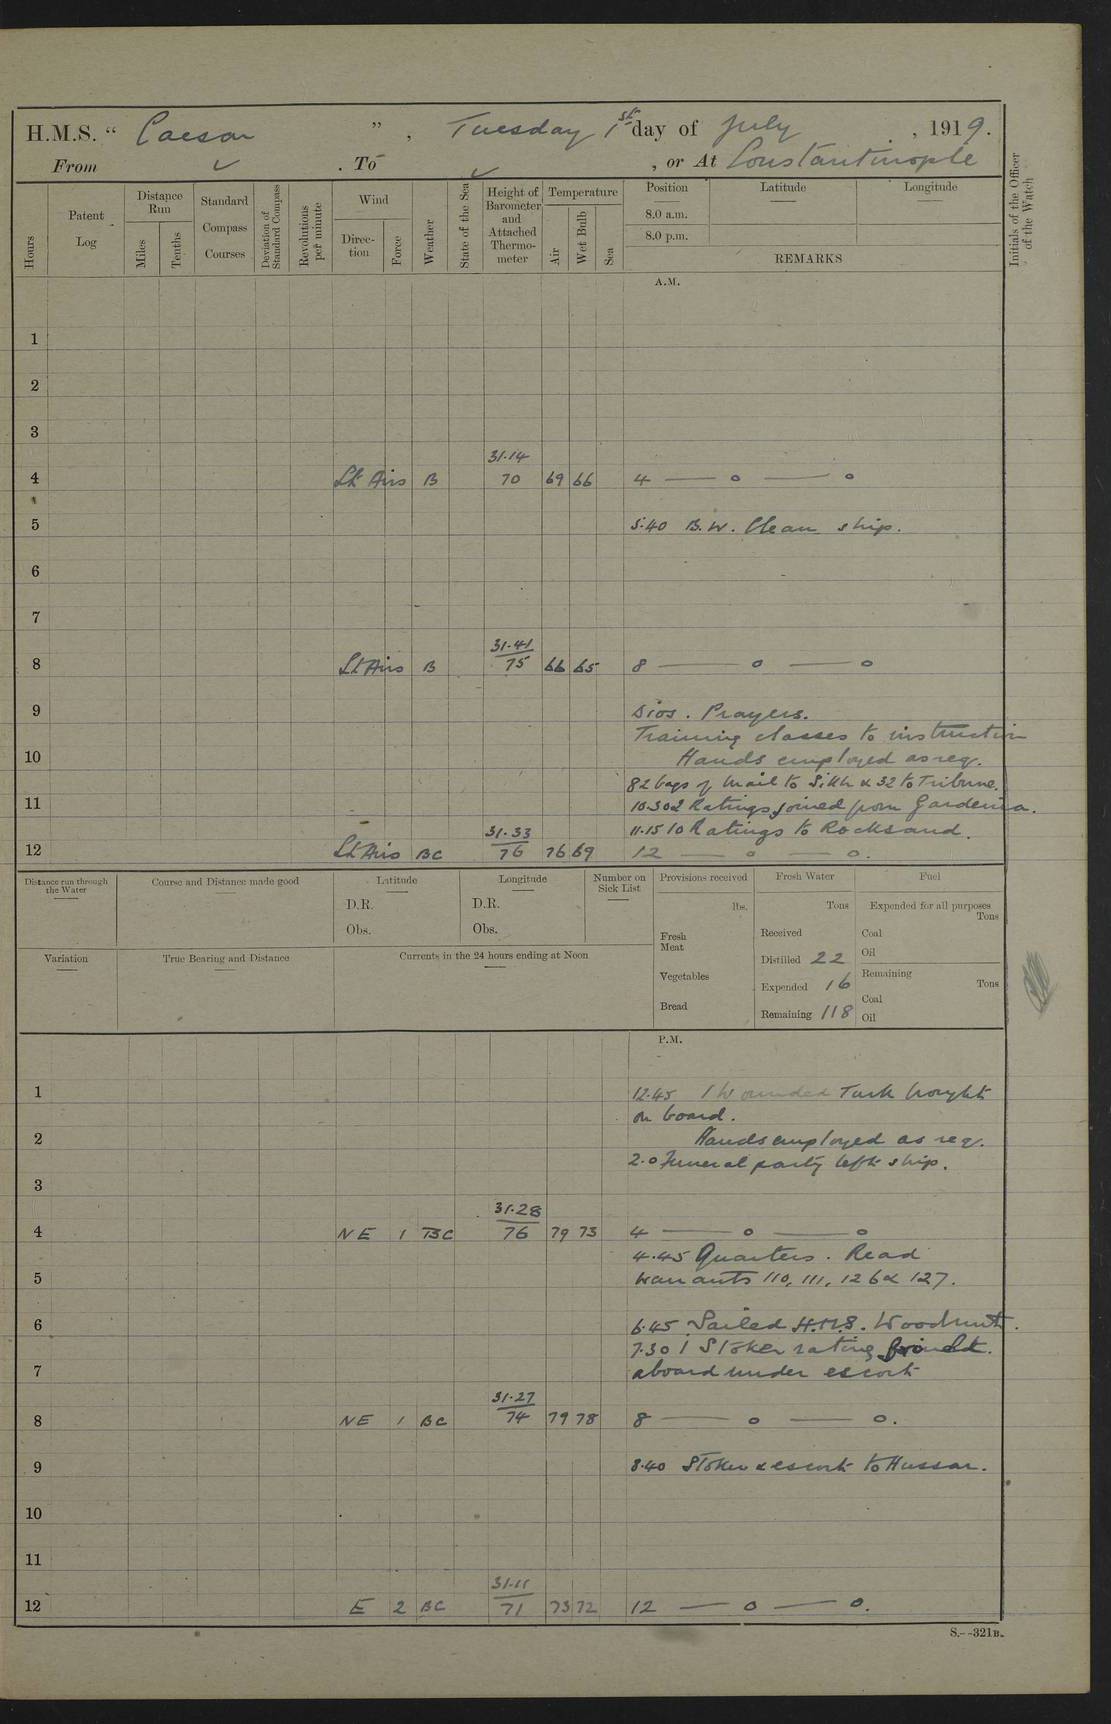 H.M.S. " Caesar " , Tuesday 1st day of July , 1919.
From ✓ . To ✓ , or At Constantinople
Hours
Patent Log
Distance Run
Miles
Tenths
Standard Compass Courses
Deviation of Standard Compass
Revolutions per minute
Wind
Direction
Force
Weather
State of the Sea
Height of Barometer and Attached Thermometer
Temperature
Air
Wet Bulb
Sea
Position
8.0 a.m.
8.0 p.m.
Latitude
Longitude
REMARKS
Initials of the Officer of the Watch
A.M.
1
2
3
31.14
4 Lt Airs B 70 69 66 4 — o — o
5 5.40 B.W. Clean ship.
6
7
31.41
8 Lt Airs B 75 66 65 8 — o — o
9 Divs. Prayers.
Training classes to instruction
10 Hands employed as req.
82 bags of mail to Sikh & 32 to Tribune.
11 10.30 2 Ratings joined from Gardenia.
31.33 11.15 10 Ratings to Rocksand.
12 Lt Airs BC 76 76 69 12 — o — o.
Distance run through the Water
Course and Distance made good
Latitude
D.R.
Obs.
Longitude
D.R.
Obs.
Number on Sick List
Provisions received
lbs.
Fresh Meat
Vegetables
Bread
Fresh Water
Tons
Received
Distilled 22
Expended 16
Remaining 118
Fuel
Expended for all purposes
Tons
Coal
Oil
Remaining
Tons
Coal
Oil
Variation
True Bearing and Distance
Currents in the 24 hours ending at Noon
P.M.
1 12.45 1 Wounded Turk brought
on board.
2 Hands employed as req.
2.0 Funeral party left ship.
3
31.28
4 NE 1 BC 76 79 73 4 — o — o
4.45 Quarters. Read
5 Warrants 110, 111, 126 & 127.
6 6.45 Sailed H.M.S. Woodnut.
7.30 1 Stoker rating
7 aboard under escort
31.27
8 NE 1 BC 74 79 78 8 — o — o.
9 8.40 Stoker & escort to Hussar.
10
11
31.11
12 E 2 BC 71 73 72 12 — o — o.
S.--321B.